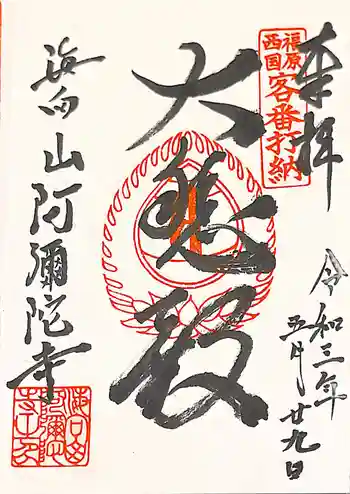 奉拝
福原
西国
客番打納
令和三年
五月廿九日
大悲殿
海向山阿彌陀寺